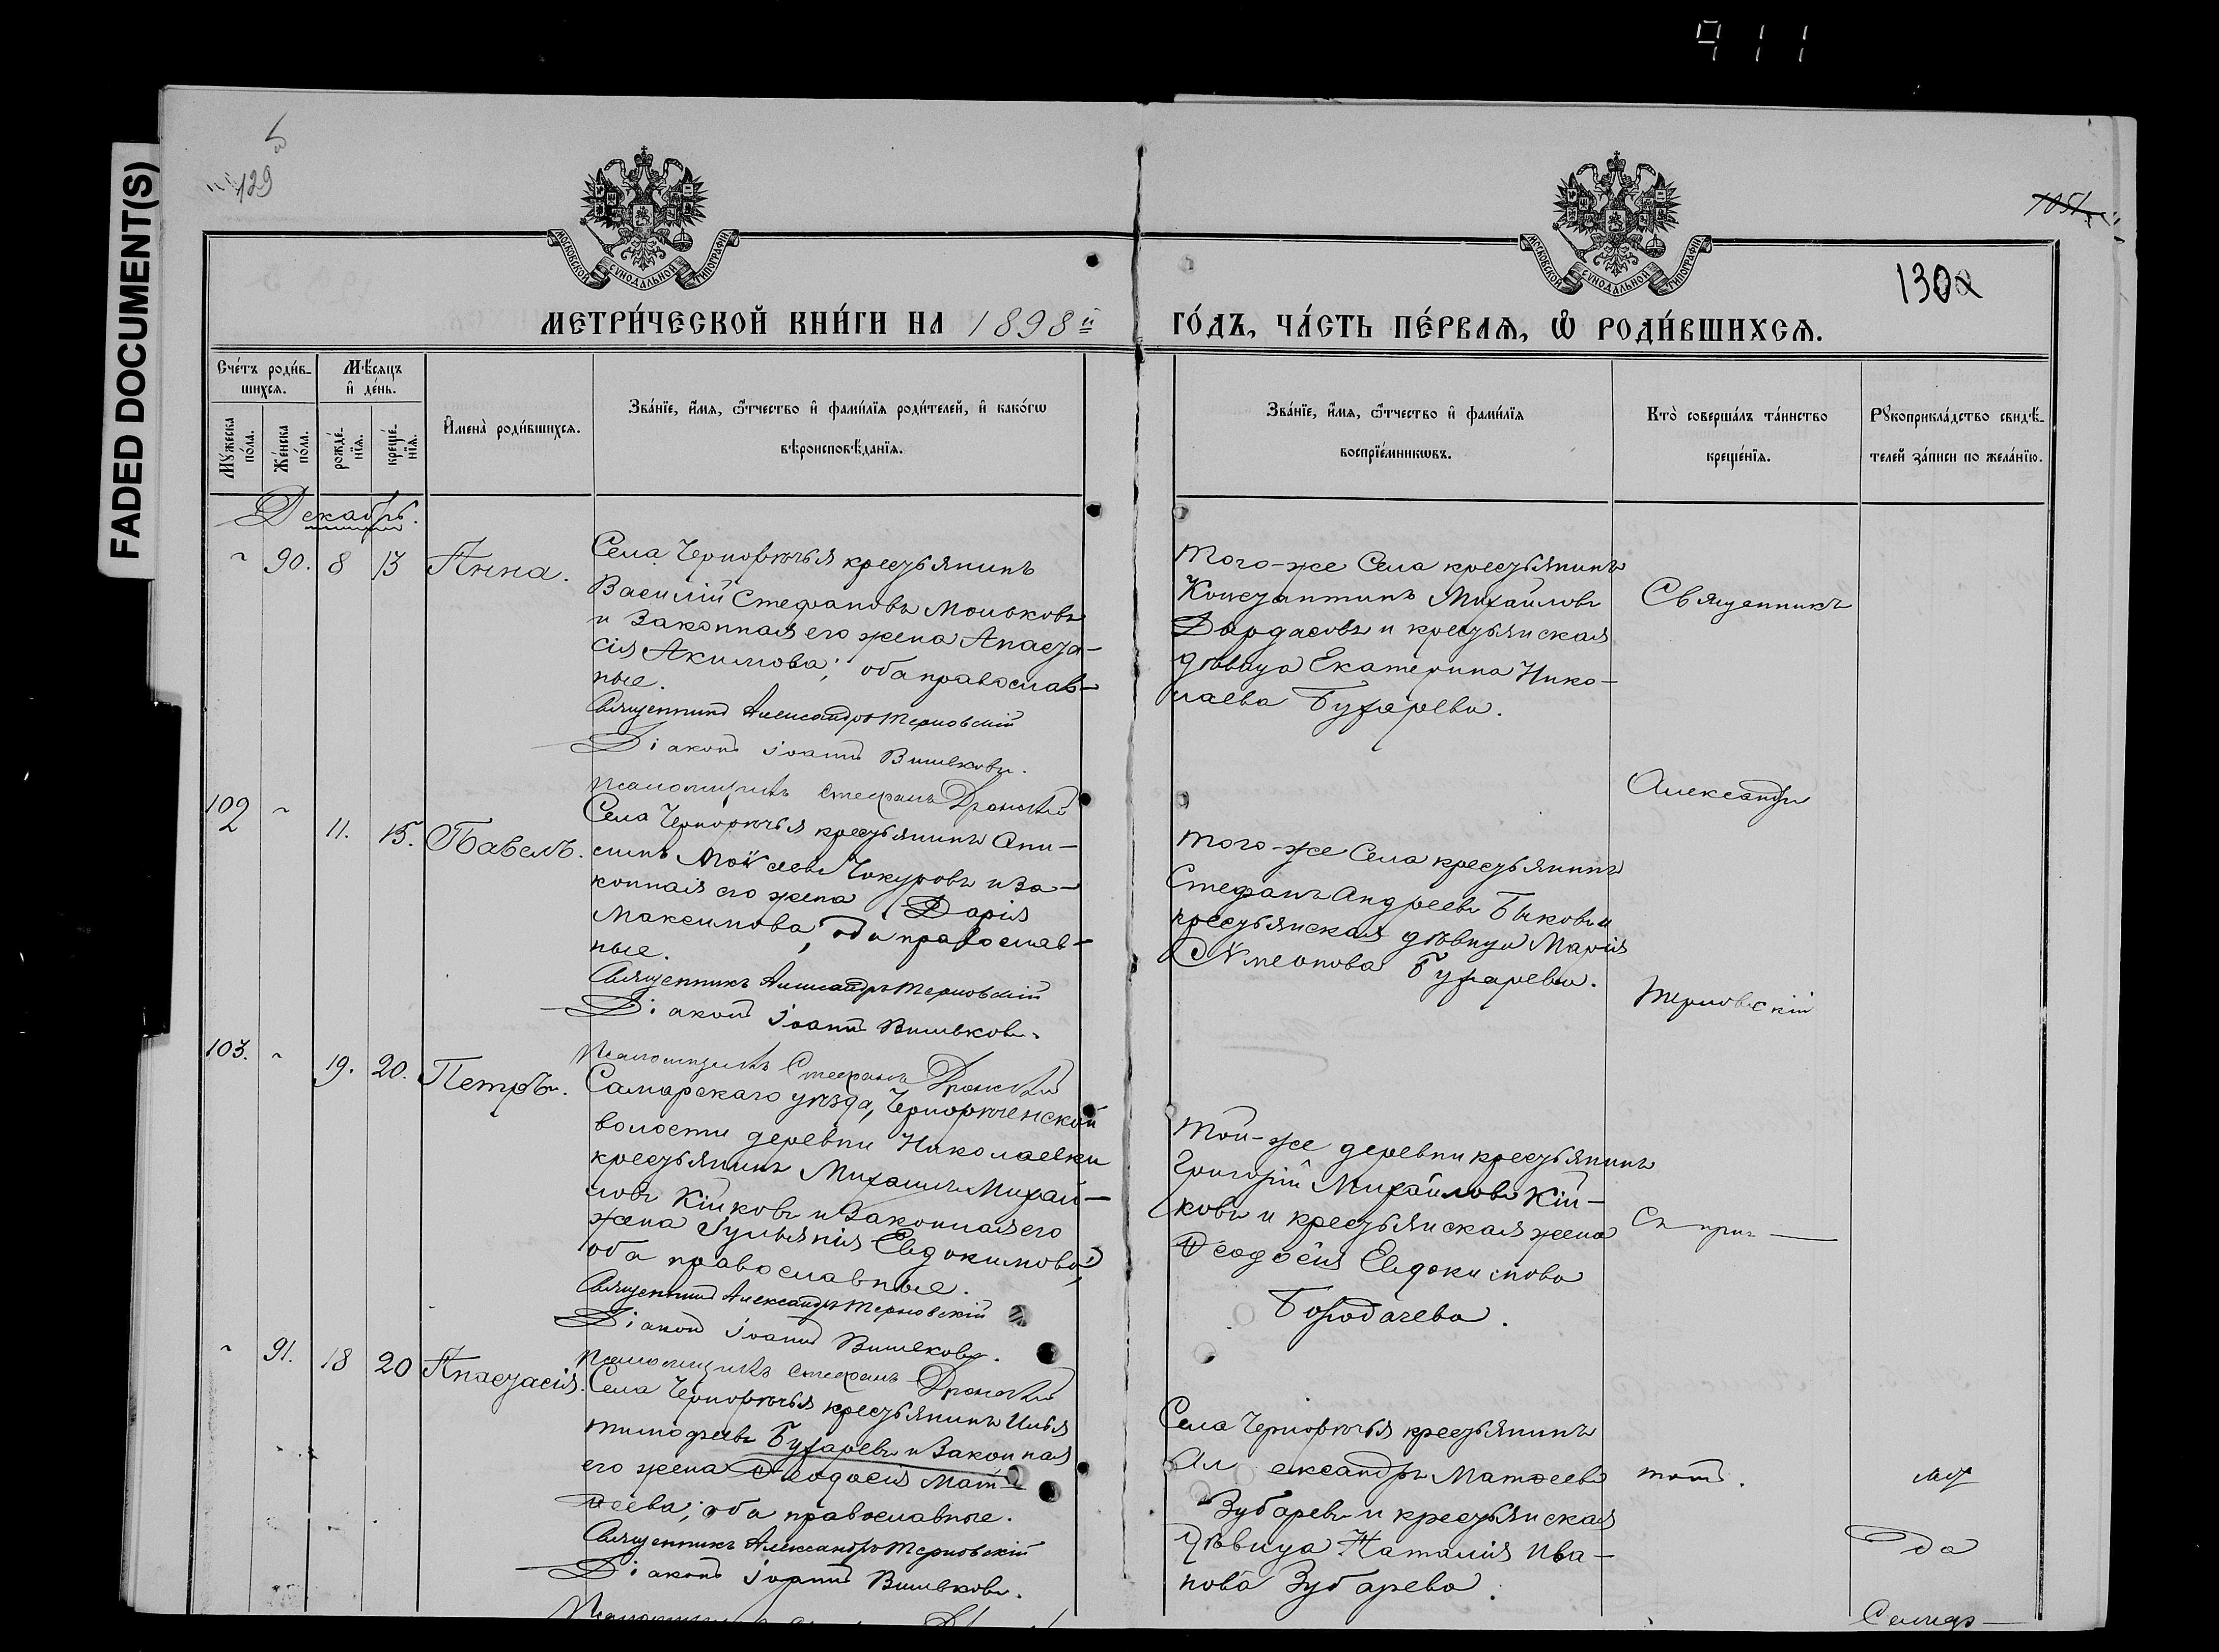 911
FADED DOCUMENT(S)
129
1051
130
МОСКОВСКОЙ СѴНОДАЛЬНОЙ ТИПОГРАФІИ
МОСКОВСКОЙ СѴНОДАЛЬНОЙ ТИПОГРАФІИ
МЕТРИ́ЧЕСКОЙ КНИ́ГИ НА 1898й
ГО́ДЪ, ЧА́СТЬ ПЕ́РВАѦ, Ѽ РОДИ́ВШИХСѦ.
Сче́тъ роди́в-
шихсѧ.
Мѣ́сѧцъ
и҆ де́нь.
Мꙋ́жеска по́ла.
Же́нска по́ла.
рожде́-
нїѧ.
креще́-
нїѧ.
И҆мена̀ роди́вшихсѧ.
Зва́нїе, и҆́мѧ, ѻ҆́тчество и҆ фами́лїѧ роди́телей, и҆ како́гѡ
вѣроисповѣ́данїѧ.
Зва́нїе, и҆́мѧ, ѻ҆́тчество и҆ фами́лїѧ
воспрїе́мникѡвъ.
Кто̀ соверша́лъ та́инство
креще́нїѧ.
Рꙋкоприкла́дство свидѣ́-
телей за́писи по жела́нїю.
Декабрь.
90. 8 13 Анна.
Села Черноречья крестьянинъ
Василій Стефановъ Моньковъ
и законная его жена Анаста-
сія Акимова; оба православ-
ные.
Священникъ Александръ Терновскій
Діаконъ Іоаннъ
Псаломщикъ Стефанъ
Того-же Села крестьянинъ
Константинъ Михайловъ
Дардасовъ и крестьянская
дѣвица Екатерина Нико-
лаева Бухарева.
Священникъ
Александръ
Терновскій
102 11. 15. Павелъ.
Села Черноречья крестьянинъ Они-
симъ Моѵсеевъ Чокуровъ и за-
конная его жена Дарія
Максимова; оба православ-
ные.
Священникъ Александръ Терновскій
Діаконъ Іоаннъ
Псаломщикъ Стефанъ
Того-же Села крестьянинъ
Стефанъ Андреевъ Быковъ и
крестьянская дѣвица Марія
Сѵмеонова Бухарева.
103. 19. 20. Петръ.
Самарскаго уѣзда, Чернореченской
волости деревни Николаевки
крестьянинъ Михаилъ Михай-
ловъ Кійковъ и законная его
жена Іуліанія Евдокимова;
оба православные.
Священникъ Александръ Терновскій
Діаконъ Іоаннъ
Псаломщикъ Стефанъ
Той-же деревни крестьянинъ
Григорій Михайловъ Кій-
ковъ и крестьянская жена
Ѳеодосія Евдокимова
Бородачева.
Съ прич-
91. 18 20 Анастасія.
Села Черноречья крестьянинъ Илья
Тимофеевъ Бухаревъ и законная
его жена Ѳеодосія Мат-
ѳеева; оба православные.
Священникъ Александръ Терновскій
Діаконъ Іоаннъ
Села Черноречья крестьянинъ
Александръ Матѳеевъ
Зубаревъ и крестьянская
дѣвица Наталія Ива-
нова Зубарева.
томъ.